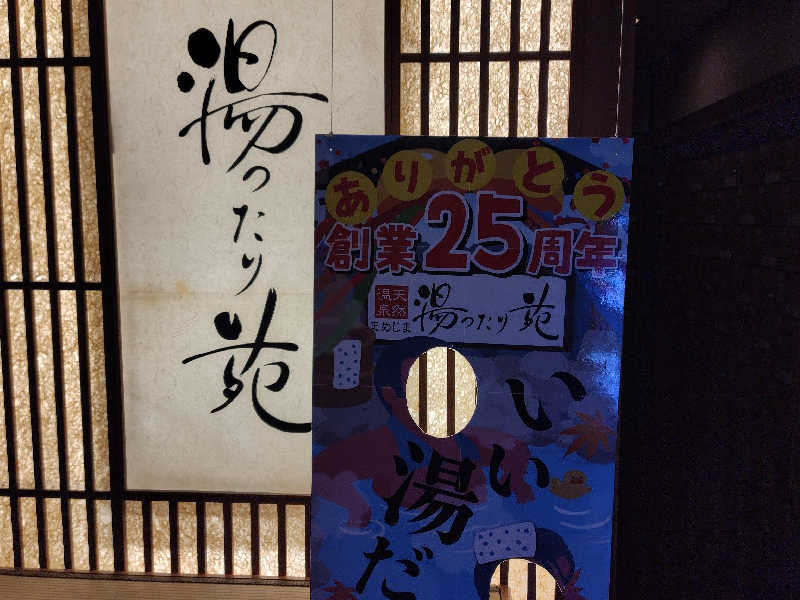 湯ったり苑
ありがとう
創業25周年
天然温泉
まめじま
湯ったり苑
いい
湯だ